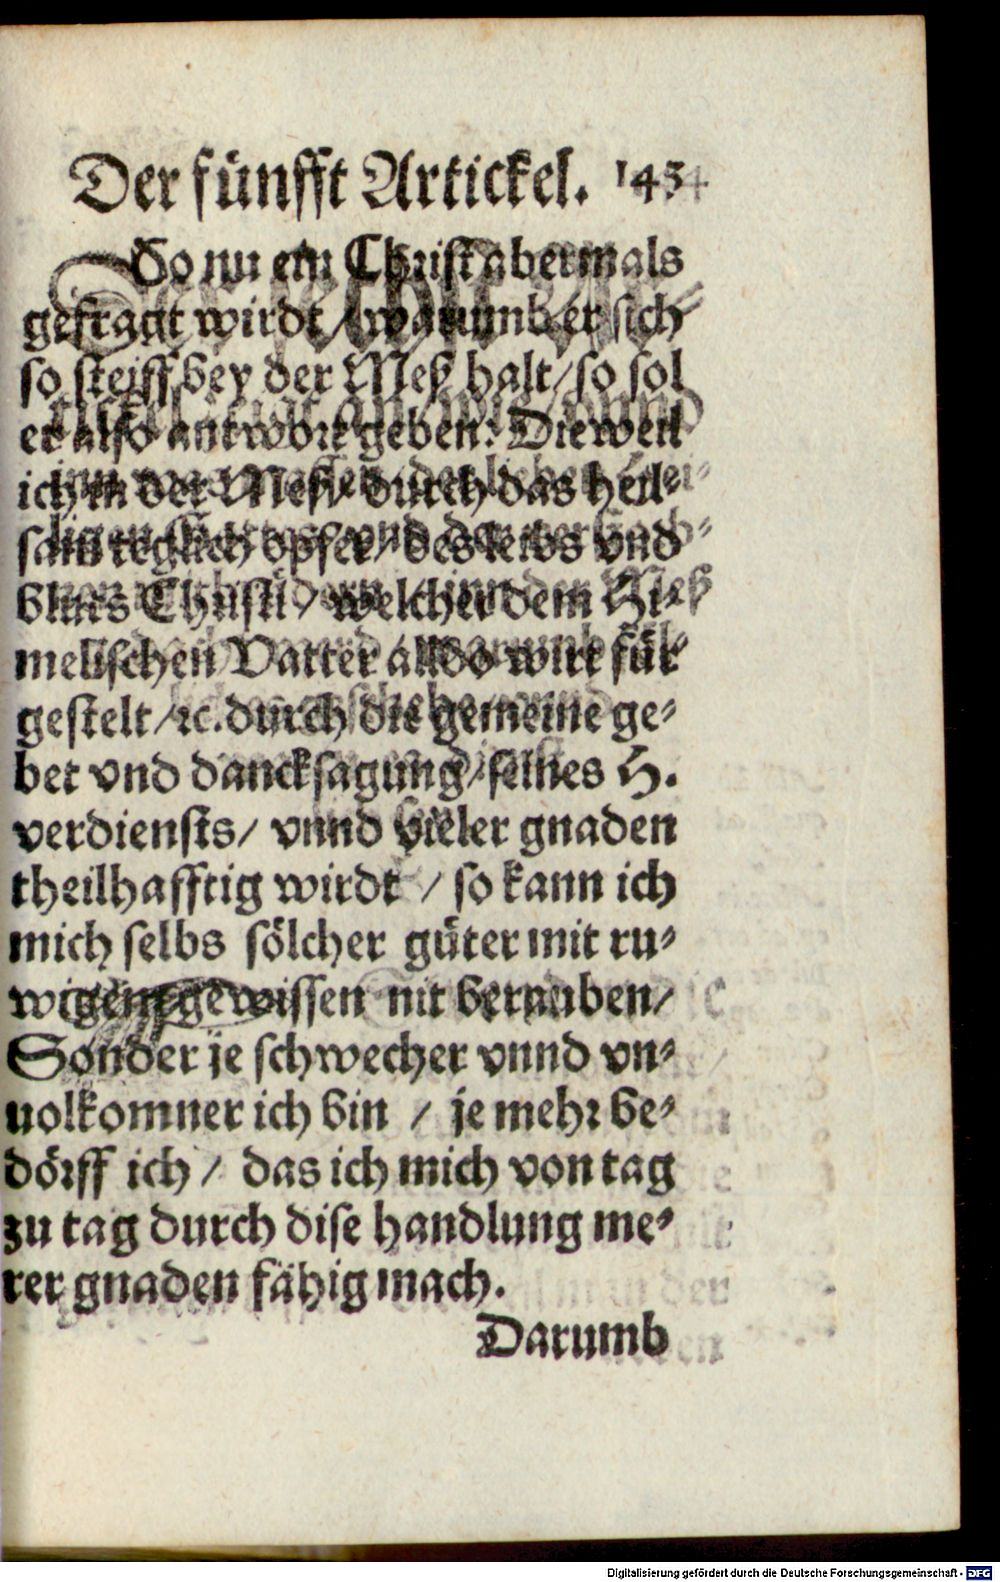 Der fünfft Artickel. 145
So nu ein Christ abermals
gefragt wirdt / warumb er sich
so steiff bey der Meß halt / so sol
er also antwort geben: Die weil
ich in der Meß / durch das heil-
sam teglich opfer / des leibs vnd
bluts Christi / welcher dem Hi-
melischen Vatter alldo wirt für
gestelt / ꝛc. durch die gemeine ge-
bet vnd dancksagung / seines H.
verdiensts / vnnd vieler gnaden
theilhafftig wirdt / so kann ich
mich selbs sölcher güter mit ru-
wigem gewissen nit berauben /
Sonder je schwecher vnnd vn-
uolkomner ich bin / je mehr be-
dörff ich / das ich mich von tag
zu tag durch dise handlung me-
rer gnaden fähig mach.
Darumb
Digitalisierung gefördert durch die Deutsche Forschungsgemeinschaft - DFG